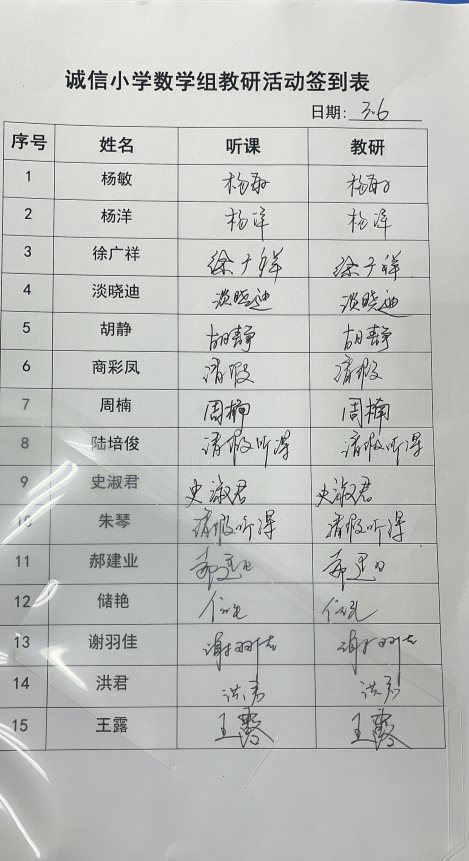 诚信小学数学组教研活动签到表
日期: 3.6
序号 姓名 听课 教研
1 杨敏 杨敏 杨敏
2 杨洋 杨洋 杨洋
3 徐广祥 徐广祥 徐广祥
4 淡晓迪 淡晓迪 淡晓迪
5 胡静 胡静 胡静
6 商彩凤 请假 请假
7 周楠 周楠 周楠
8 陆培俊 请假听课 请假听课
9 史淑君 史淑君 史淑君
10 朱琴 请假听课 请假听课
11 郝建业
12 储艳
13 谢羽佳 谢羽佳 谢羽佳
14 洪君 洪君 洪君
15 王露 王露 王露